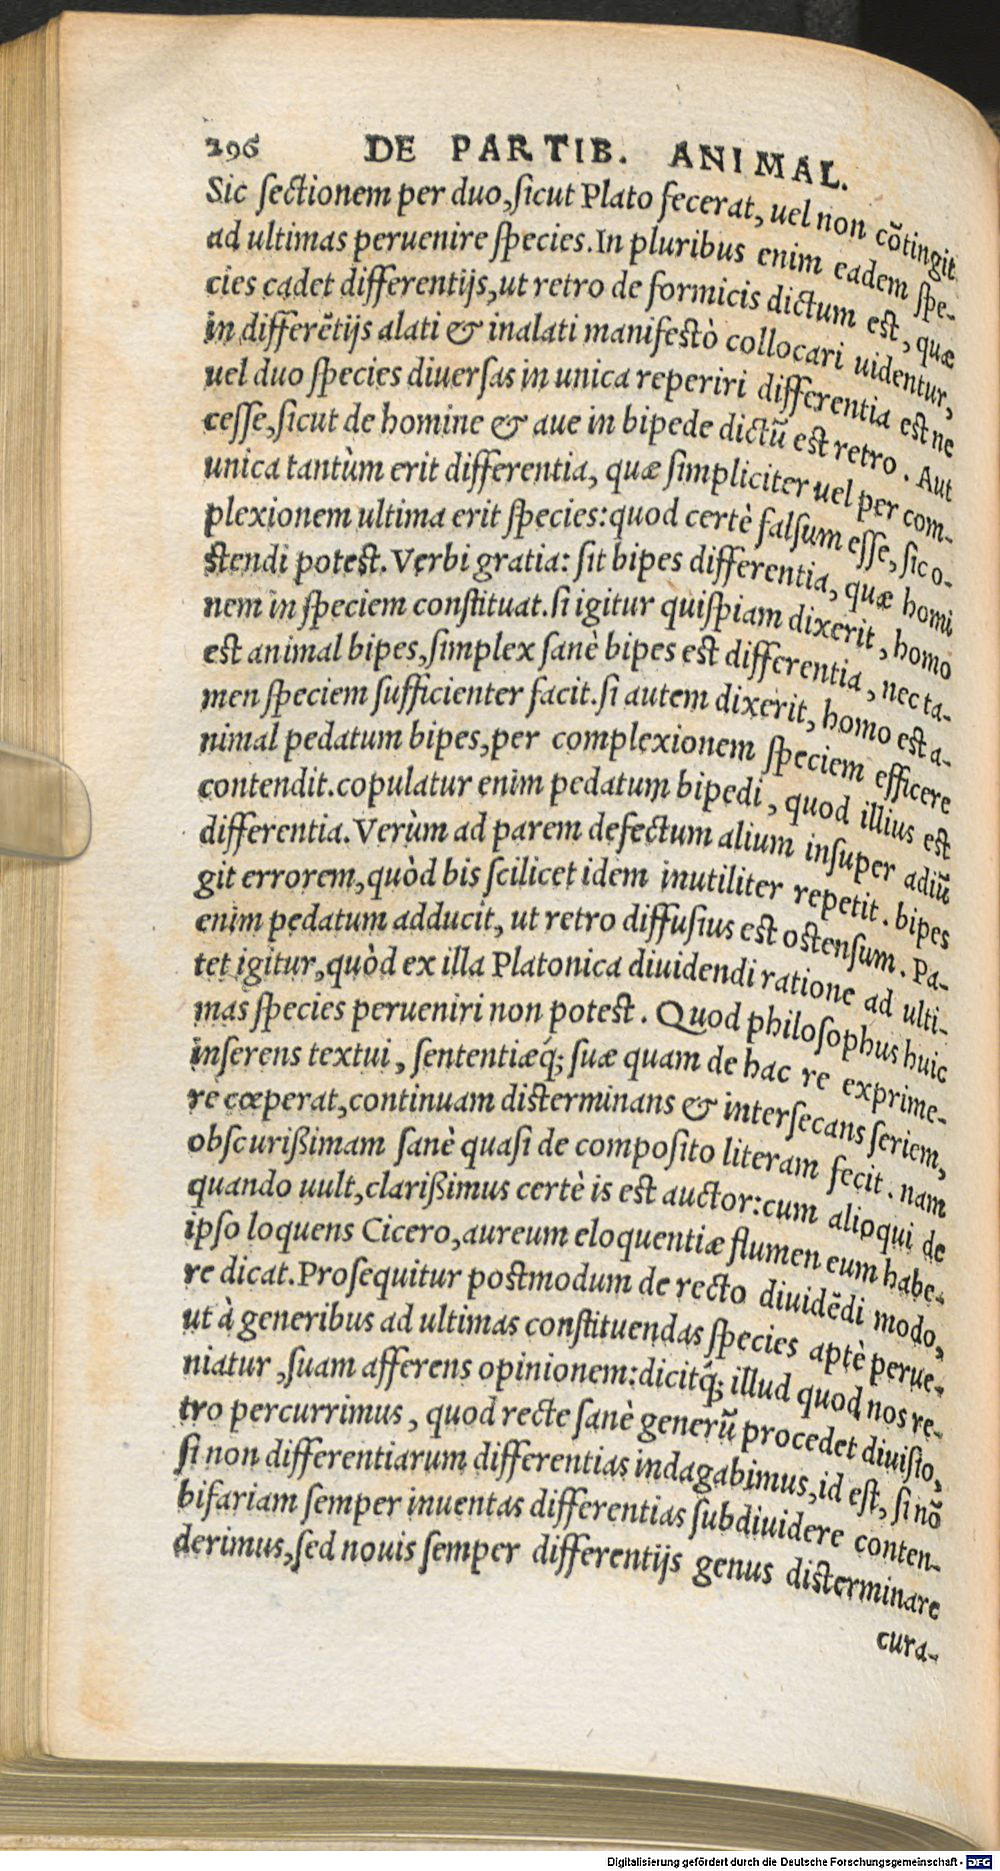 296 DE PARTIB. ANIMAL.
Sic sectionem per duo, sicut Plato fecerat, uel non cõtingit
ad ultimas peruenire species. In pluribus enim eadem spe-
cies cadet differentijs, ut retro de formicis dictum est, quæ
in differẽtijs alati & inalati manifestò collocari uidentur,
uel duo species diuersas in unica reperiri differentia est ne
cesse, sicut de homine & aue in bipede dictũ est retro. Aut
unica tantùm erit differentia, quæ simpliciter uel per com-
plexionem ultima erit species: quod certè falsum esse, sic o-
stendi potest. Verbi gratia: sit bipes differentia, quæ homi
nem in speciem constituat. si igitur quispiam dixerit, homo
est animal bipes, simplex sanè bipes est differentia, nec ta-
men speciem sufficienter facit. si autem dixerit, homo est a-
nimal pedatum bipes, per complexionem speciem efficere
contendit. copulatur enim pedatum bipedi, quod illius est
differentia. Verùm ad parem defectum alium insuper adiũ
git errorem, quòd bis scilicet idem inutiliter repetit. bipes
enim pedatum adducit, ut retro diffusius est ostensum. Pa-
tet igitur, quòd ex illa Platonica diuidendi ratione ad ulti-
mas species perueniri non potest. Quod philosophus huic
inserens textui, sententiæq́; suæ quam de hac re exprime-
re cœperat, continuam disterminans & intersecans seriem,
obscurißimam sanè quasi de composito literam fecit. nam
quando uult, clarißimus certè is est auctor: cum alioqui de
ipso loquens Cicero, aureum eloquentiæ flumen eum habe-
re dicat. Prosequitur postmodum de recto diuidẽdi modo,
ut à generibus ad ultimas constituendas species aptè perue-
niatur, suam afferens opinionem: dicitq́; illud quod nos re-
tro percurrimus, quod recte sanè generũ procedet diuisio,
si non differentiarum differentias indagabimus, id est, si nõ
bifariam semper inuentas differentias subdiuidere conten-
derimus, sed nouis semper differentijs genus disterminare
cura-
Digitalisierung gefördert durch die Deutsche Forschungsgemeinschaft - DFG